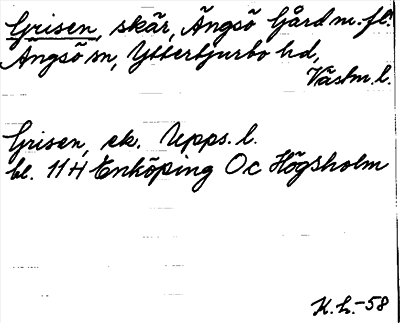 Grisen, skär, Ängsö Gård m. fl.
Ängsö sn, Ytterbjurbo hd,
Västm. l.
Grisen, ek. Upps. l.
bl. 11 H Enköping Oc Högsholm
K. h. -58